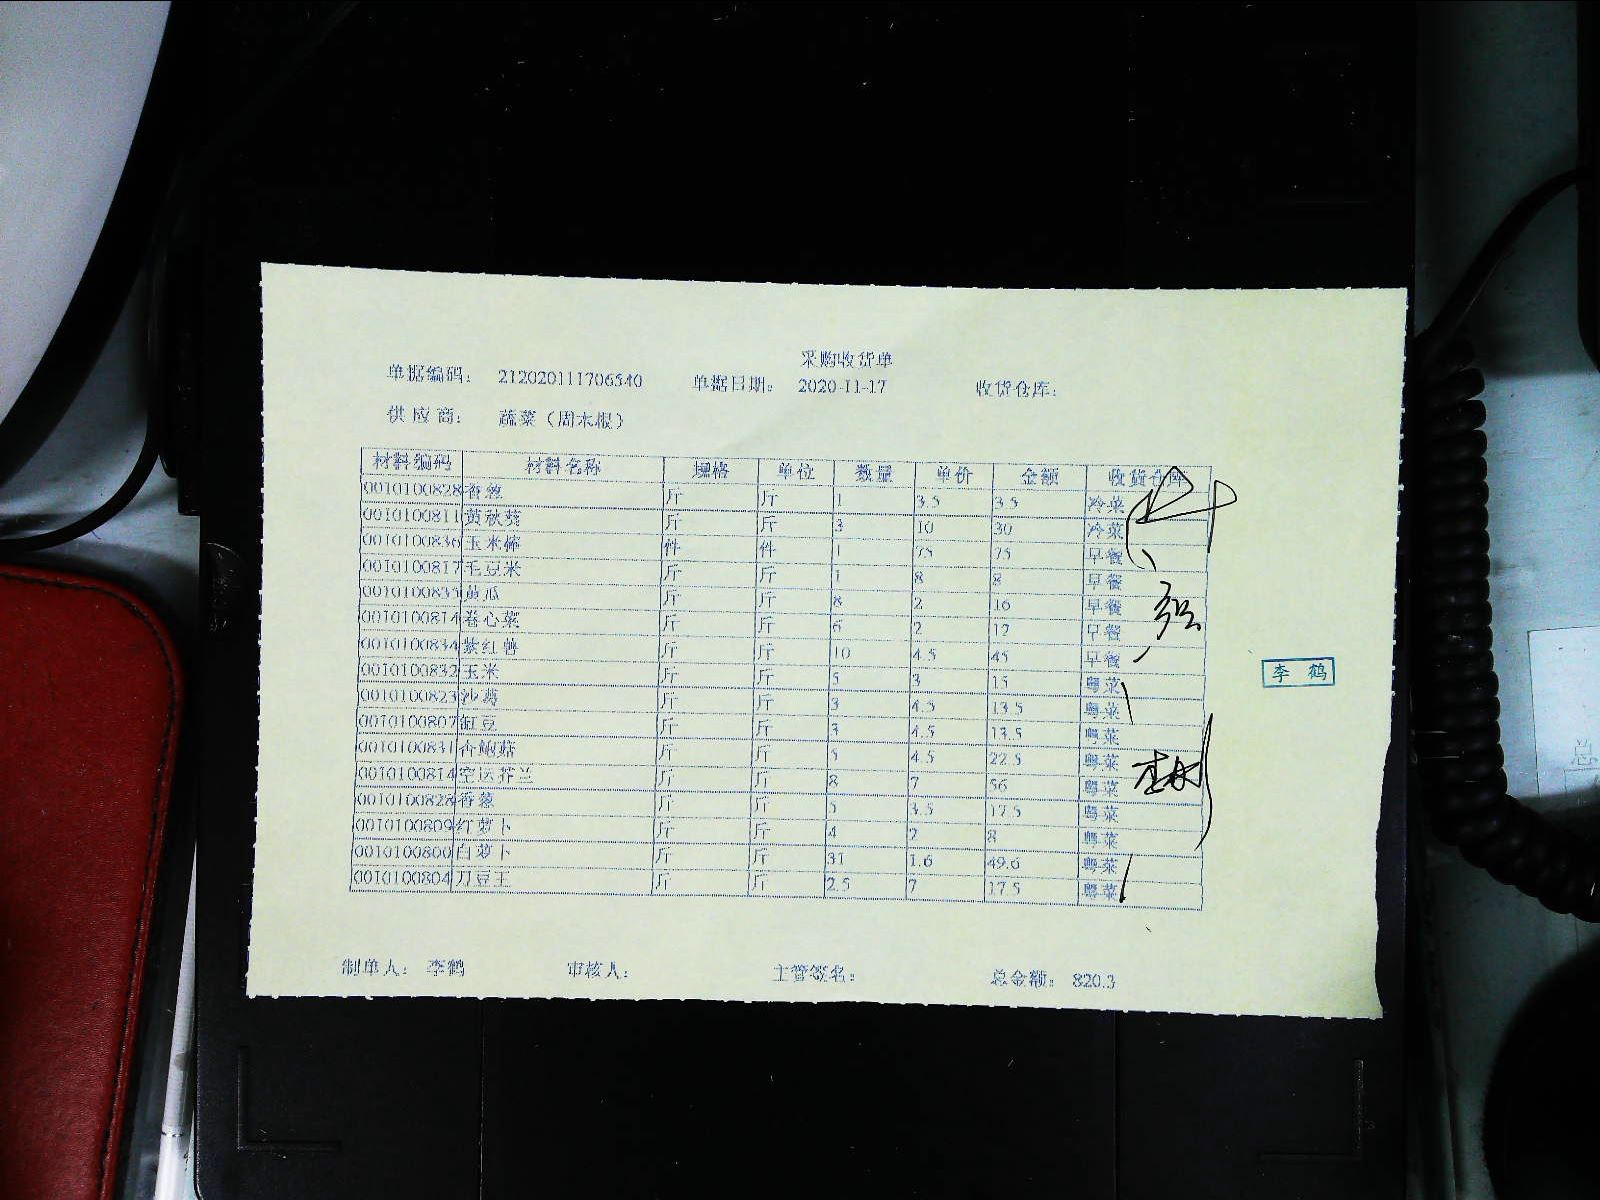 采购收货单
单据编码： 212020111706540 单据日期： 2020-11-17 收货仓库：
供 应 商： 蔬菜（周末根）
材料编码 材料名称 规格 单位 数量 单价 金额 收货仓库
0010100828 香葱 斤 斤 1 3.5 3.5 冷菜
0010100811 黄秋葵 斤 斤 3 10 30 冷菜
0010100836 玉米棒 件 件 1 75 75 早餐
0010100817 毛豆米 斤 斤 1 8 8 早餐
0010100835 黄瓜 斤 斤 8 2 16 早餐
0010100814 卷心菜 斤 斤 6 2 12 早餐
0010100834 紫红薯 斤 斤 10 4.5 45 早餐
0010100832 玉米 斤 斤 5 3 15 粤菜
0010100823 沙葛 斤 斤 3 4.5 13.5 粤菜
0010100807 缸豆 斤 斤 3 4.5 13.5 粤菜
0010100831 杏鲍菇 斤 斤 5 4.5 22.5 粤菜
0010100814 空运芥兰 斤 斤 8 7 56 粤菜
0010100828 香葱 斤 斤 5 3.5 17.5 粤菜
0010100809 红萝卜 斤 斤 4 2 8 粤菜
0010100800 白萝卜 斤 斤 31 1.6 49.6 粤菜
0010100804 刀豆王 斤 斤 2.5 7 17.5 粤菜
李 鹤
制单人： 李鹤 审核人： 主管签名： 总金额： 820.3